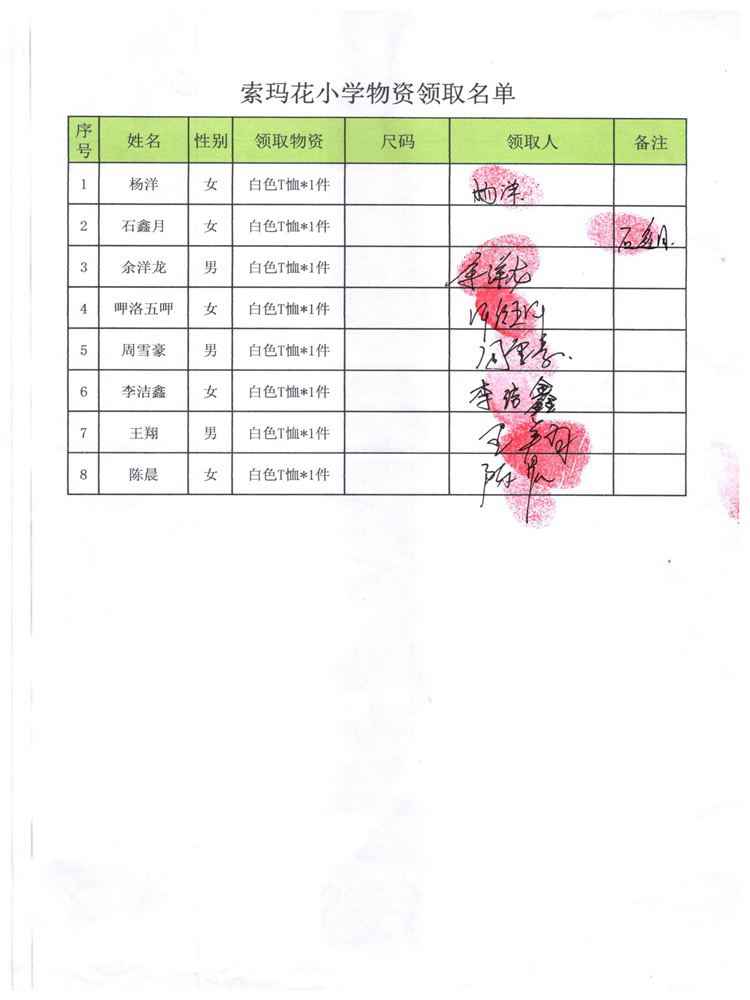 索玛花小学物资领取名单
序号 姓名 性别 领取物资 尺码 领取人 备注
1 杨洋 女 白色T恤*1件 杨洋
2 石鑫月 女 白色T恤*1件 石鑫月
3 余洋龙 男 白色T恤*1件 余洋龙
4 呷洛五呷 女 白色T恤*1件
5 周雪豪 男 白色T恤*1件 周雪豪
6 李洁鑫 女 白色T恤*1件 李洁鑫
7 王翔 男 白色T恤*1件 王翔
8 陈晨 女 白色T恤*1件 陈晨